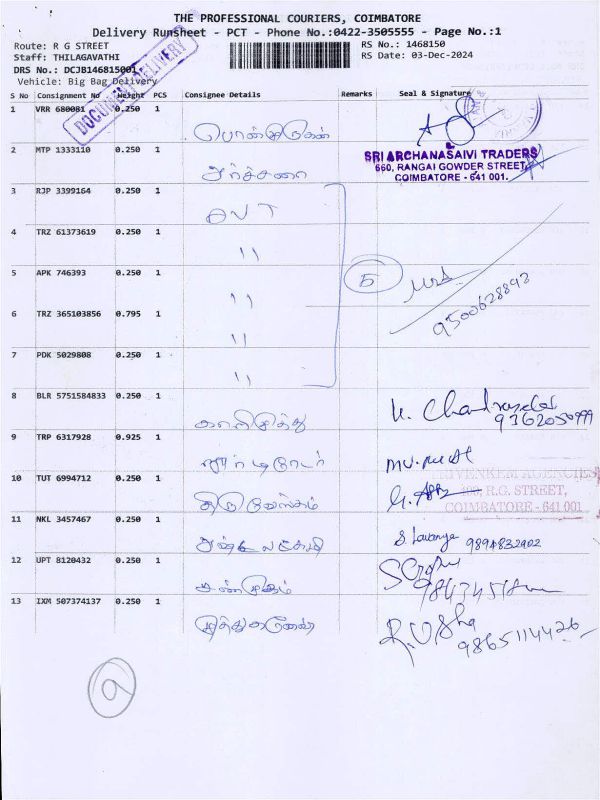 THE PROFESSIONAL COURIERS, COIMBATORE
Delivery Runsheet - PCT - Phone No.:0422-3505555 - Page No.:1
Route: R G STREET
RS No.: 1468150
Staff: THILAGAVATHI
RS Date: 03-Dec-2024
DRS No.: DCJB146815001
Vehicle: Big Bag Delivery
DOCUMENT DELIVERY
S No Consignment No Weight PCS Consignee Details Remarks Seal & Signature
1 VRR 680081 0.250 1
2 MTP 1333110 0.250 1 அர்ச்சனா
SRI ARCHANASAIVI TRADERS
660, RANGAI GOWDER STREET,
COIMBATORE - 641 001.
3 RJP 3399164 0.250 1 AVT
4 TRZ 61373619 0.250 1 "
5 APK 746393 0.250 1 " 5
9500628892
6 TRZ 365103856 0.795 1 "
7 PDK 5029808 0.250 1 "
8 BLR 5751584833 0.250 1 காளிமுத்து
9362050999
9 TRP 6317928 0.925 1
10 TUT 6994712 0.250 1
VENKEM AGENCIES
R.G. STREET,
COIMBATORE - 641 001
11 NKL 3457467 0.250 1 S Lavanya 9894832902
12 UPT 8120432 0.250 1 சண்முகம்
13 IXM 507374137 0.250 1 R. Usha
9865114426
9